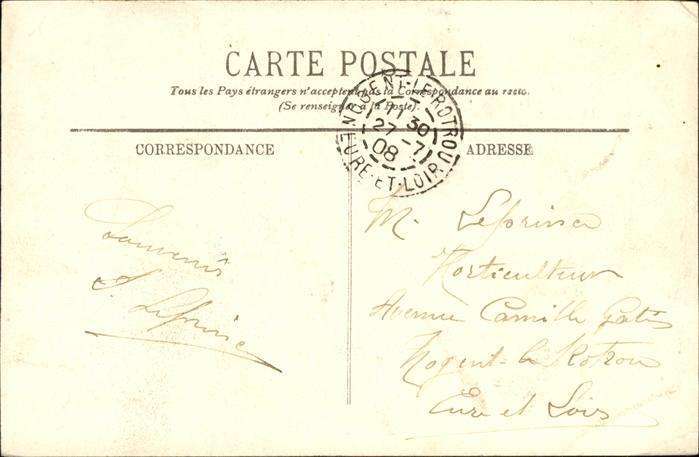 CARTE POSTALE
Tous les Pays étrangers n'acceptent pas la Correspondance au recto.
(Se renseigner à la Poste).
NOGENT-LE-ROTROU
11 30
27 - 7
08
EURE-ET-LOIR
CORRESPONDANCE
ADRESSE
Souvenirs
Leprince
M. Leprince
Horticulteur
Avenue Camille
Nogent-le Rotrou
Eure et Loir